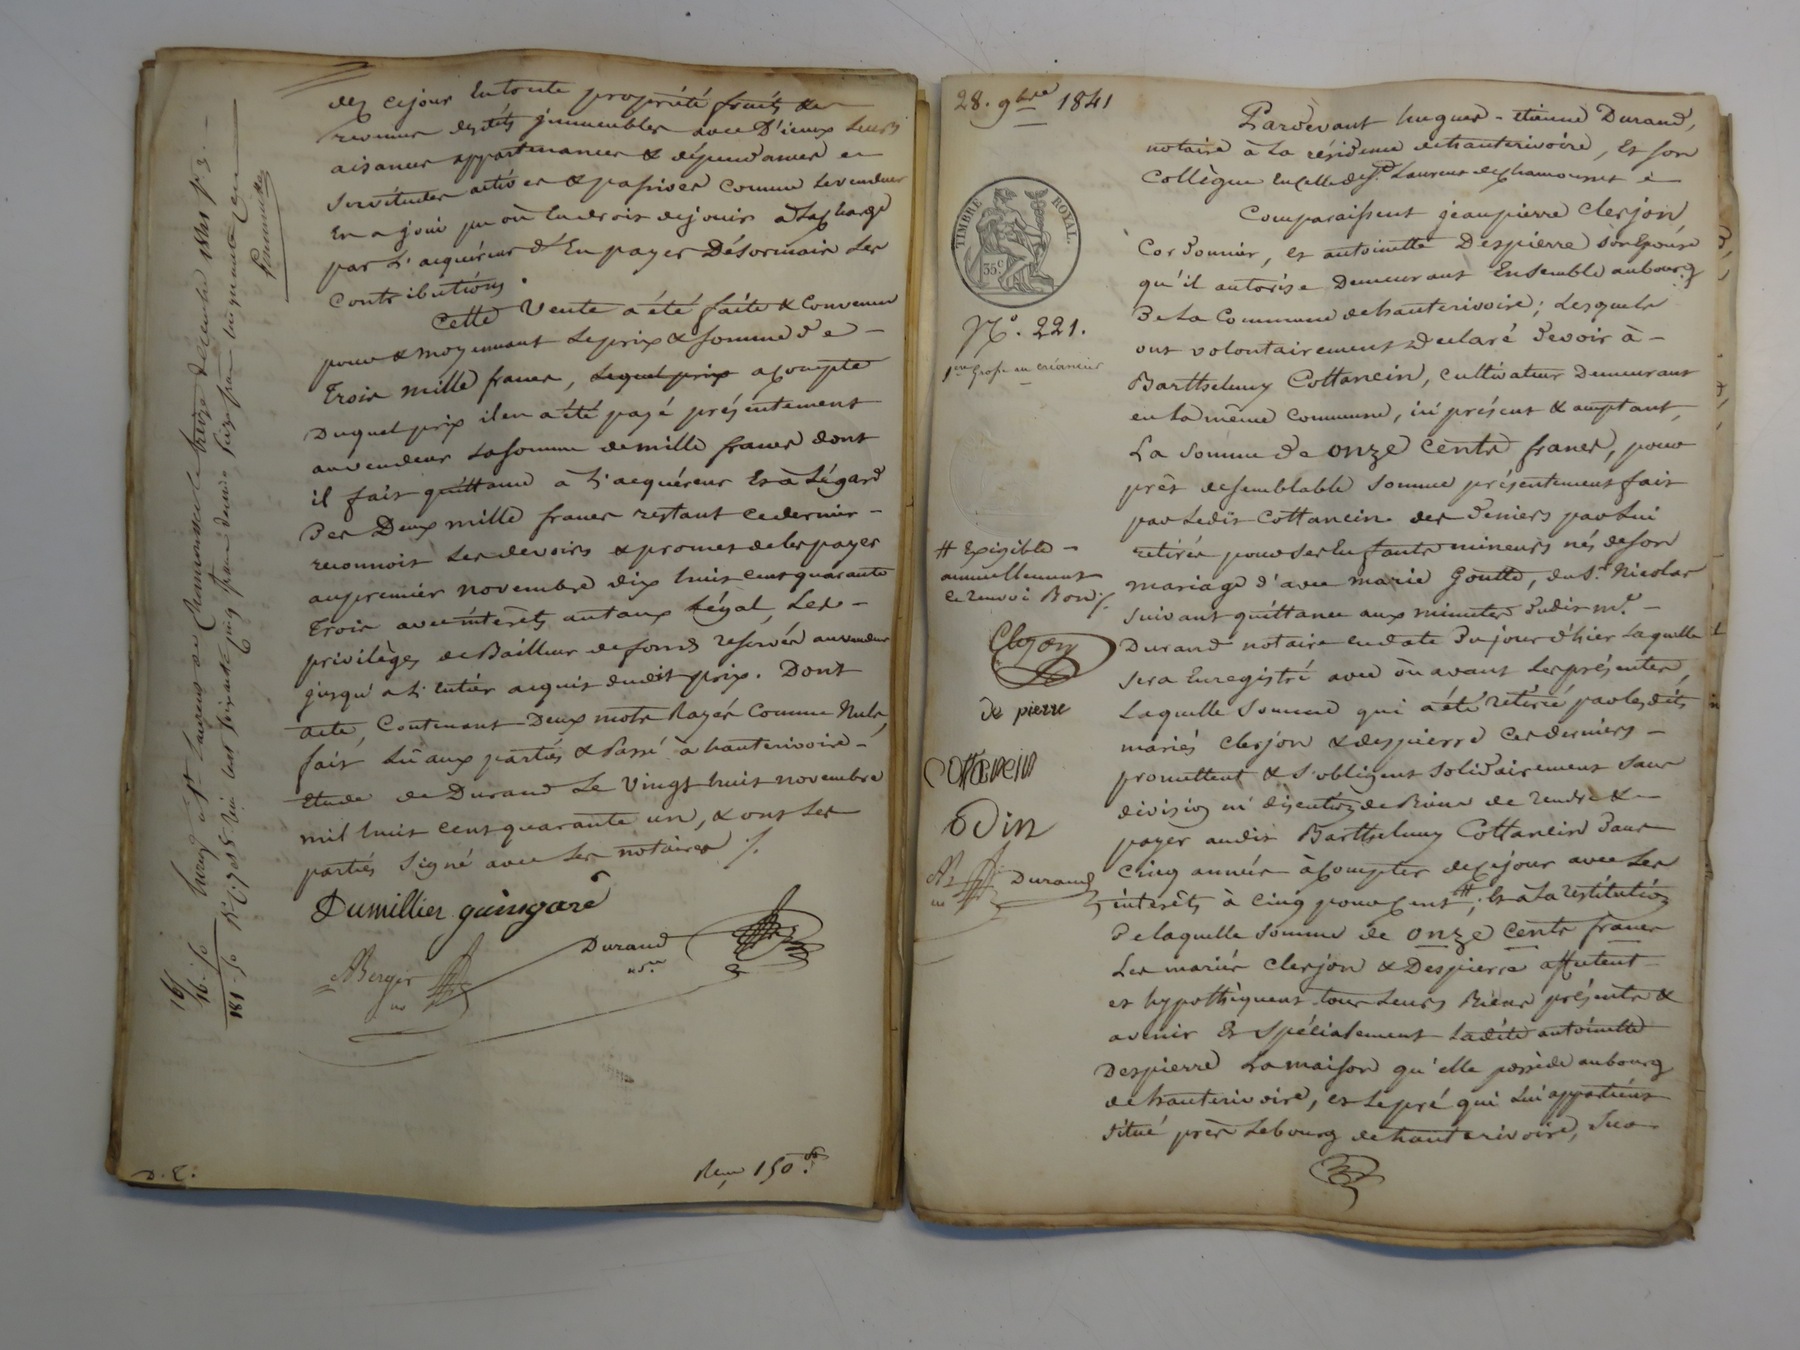 dez cejour Entoute propriété fruits &
revenus desdits jmmeubles avec D'iceux Leurs
aisances appartenances & dépendances en
Servitudes actives & passives Comme Levendeur
En a joui pu où Eudroit dejouir àLacharge
par L'acquéreur d'En payer Désormais Les
Contributions.
Cette Vente a été faite & Convenue
pour & moyennant Leprix & somme de
Trois mille francs, Lequel prix acompte
Duquel prix ilen a été payé présentement
auvendeur Lasomme demille francs dont
il fait quittance à L'acquéreur Et à Légard
Des Deux mille francs restant cedernier
reconnoit Lesdevoirs & promet deles payer
aupremier novembre dix huit cent quarante
Trois avec intérêts autaux Légal, Les
privilèges deBailleur defonds reservés auvendeur
jusqu'a L'entier acquit dudit prix. Dont
acte, Contenant Deux mots Rayés Comme Nuls,
fait Lû aux parties & Passé à hauterivoire
Etude de Durand Le Vingt huit novembre
mil huit cent quarante un, & ont Les
parties Signé avec Les notaires ./.
Dumillier guingard
Berger
Durand
D. E.
Reçu 150
181 - 50
28. 9bre 1841
TIMBRE ROYAL.
35c
N°. 221.
1ere Grosse au créancier
# Exigible
annuellement
ce renvoi Bon ./.
Clerjon
De pierre
COTTANCIN
Odin
Durand
Pardevant hugues - étienne Durand,
notaire à La résidence dehauterivoire, Et son
Collègue Encelle de St. Laurent dechamousset
Comparaissent jeanpierre Clerjon
Cordonnier, et antoinette Despierre sonEpouse
qu'il autorise Demeurant Ensemble aubourg
De La Commune dehauterivoire; Lesquels
ont volontairement Déclaré Devoir à
Barthelemy Cottancin, Cultivateur Demeurant
en La même Commune, ici présent & acceptant,
La Somme De onze Cents francs, pour
prêt desemblable Somme présentement fait
par Ledit Cottancin des Deniers par Lui
retirés pour ses Enfants mineurs nés deson
mariage d'avec marie Goutte, du Sr. Nicolas
suivant quittance aux minutes dudit me.
Durand notaire endate Dujour d'hier Laquelle
sera Enregistré avec où avant Lesprésentes,
Laquelle Somme qui a été retirée parlesdits
mariés Clerjon & despierre Ces derniers
promettent & s'obligent Solidairement Sans
division ni discution de Biens de rendre &
payer audit Barthelemy Cottancin Dans
Cinq années àCompter deCejour avec Les
intérêts à Cinq pour Cent #; Et à La restitution
De laquelle Somme de onze Cents francs
Les mariés Clerjon & Despierre affectent
et hypothèquent tous Leurs Biens présents &
avenir Et Spécialement Ladite antoinette
Despierre La maison qu'elle possède aubourg
dehauterivoire, et Lepré qui Lui appartient
Situé près Lebourg dehauterivoire, Sur